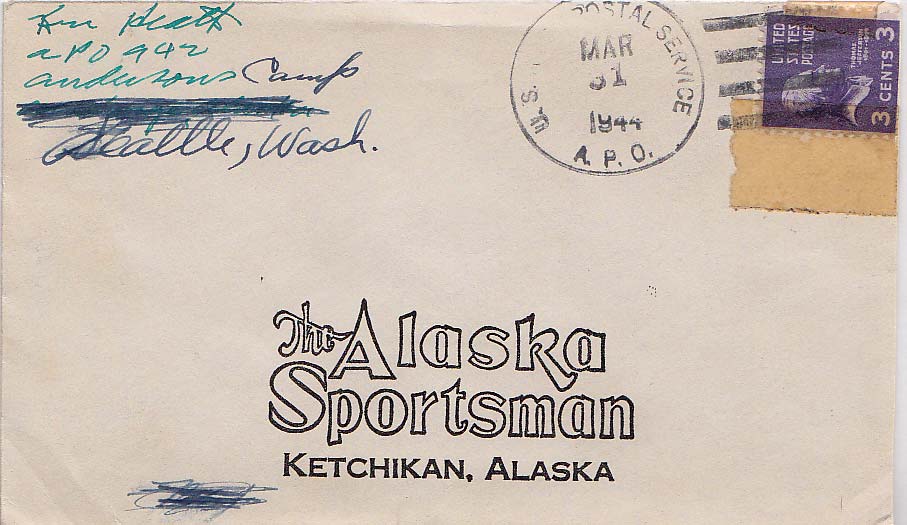 Ken Heath
APO 942
andersons Camp
Seattle, Wash.
U.S. POSTAL SERVICE
MAR
31
1944
A. P. O.
UNITED
STATES
POSTAGE
3 CENTS 3
The Alaska
Sportsman
KETCHIKAN, ALASKA